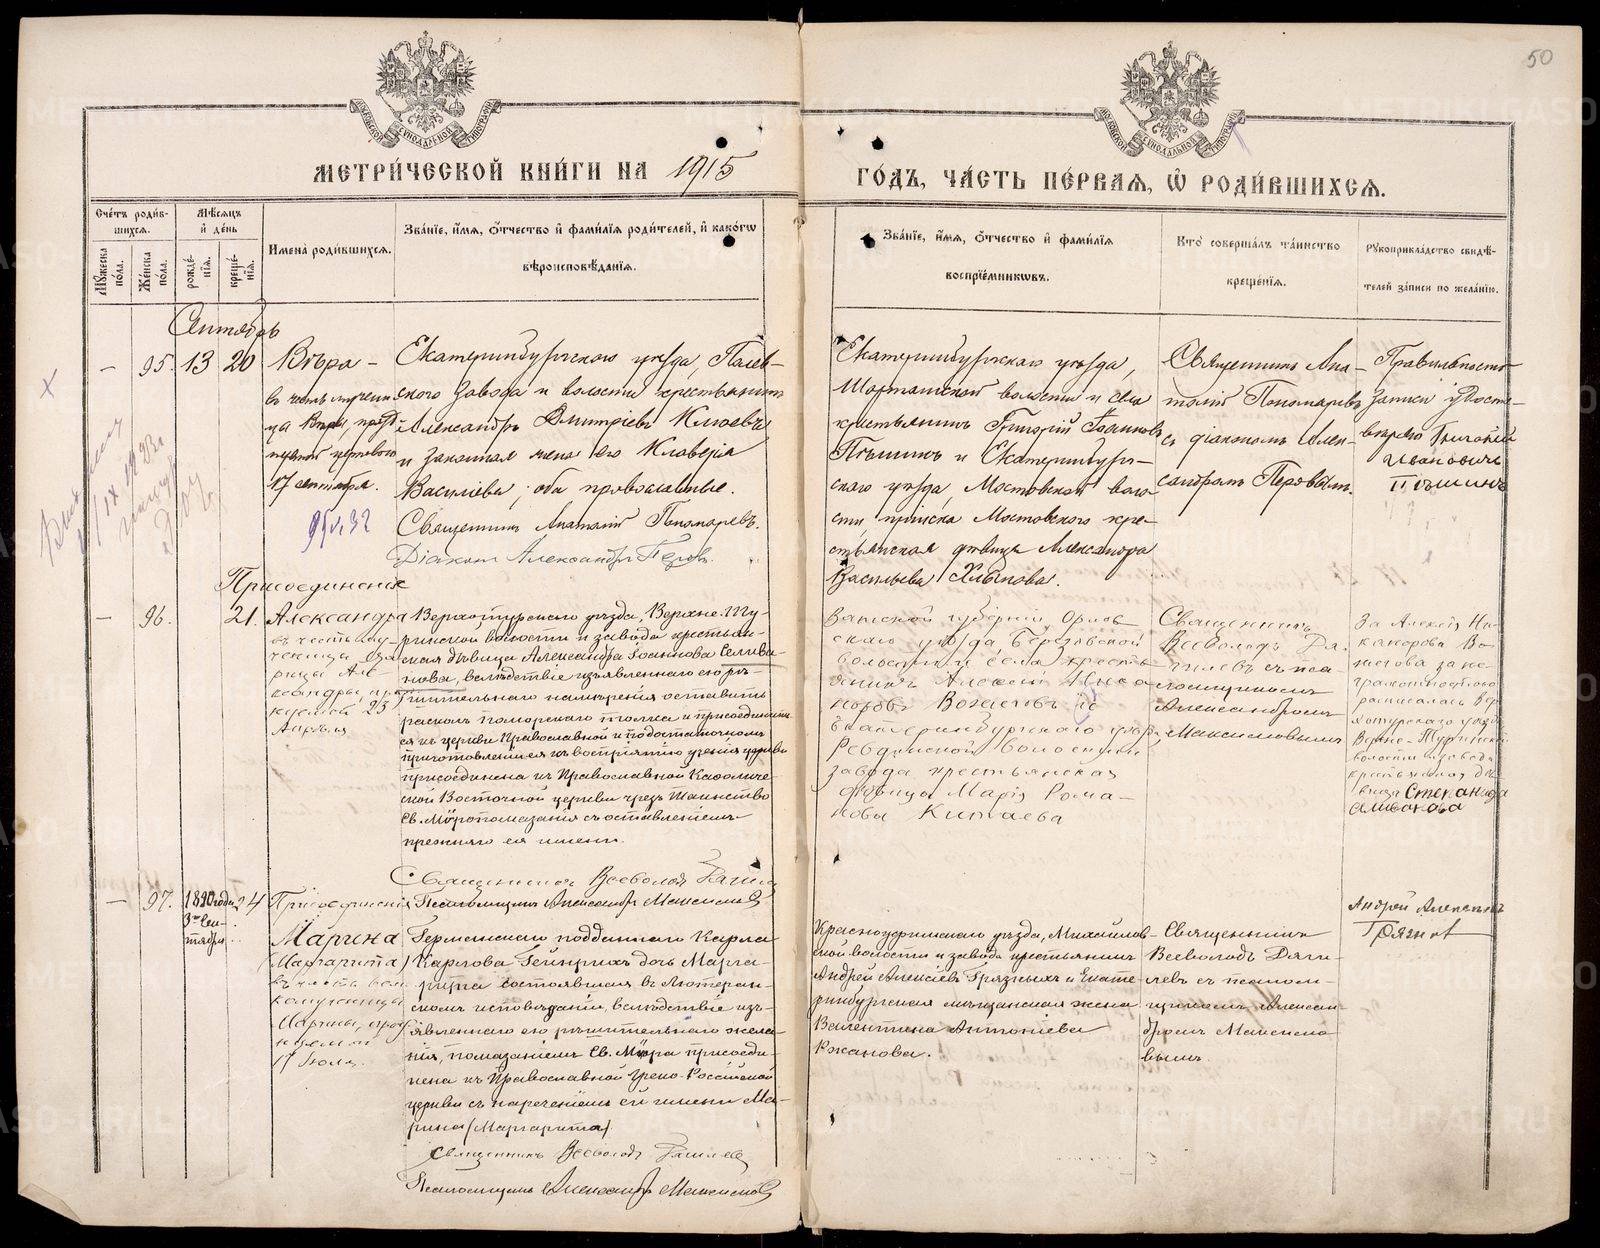 50
МЕТРИ́ЧЕСКОЙ КНИ́ГИ НА 1915 ГО́ДЪ, ЧА́СТЬ ПЕ́РВАЯ, Ѡ҆ РОДИ́ВШИХСѦ.
Счетъ роди́в-
шихся.
Мѣсяцъ
и день
Мужеска
пола.
Женска
пола.
рожде-
нія.
креще-
нія.
Имена роди́вшихся.
Зва́ніе, и́мя, о́тчество и фами́лія роди́телей, и како́гѡ
вѣроисповѣ́данія.
Зва́ніе, и́мя, о́тчество и фами́лія
воспріе́мниковъ.
Кто̀ соверша́лъ та́инство
креще́нія.
Рукоприкла́дство свидѣ́-
телей за́писи по жела́нію.
Сентябрь
— 95. 13 20
Вѣра –
въ честь мучени
цы Вѣры, празд
17 сентября.
95 v. 32
Екатеринбургскаго уѣзда, Полев-
ского завода и волости крестьянинъ
Александръ Дмитріевъ Клюевъ
и законная жена его Клавдія
Васильева, оба православные.
Священникъ Анатолій Пономаревъ.
Діаконъ Александръ Перов.
Екатеринбургскаго уѣзда,
Шарташской волости и села
крестьянинъ Григорій Іоанновъ
Пѣшинъ и Екатеринбург-
скаго уѣзда, Мостовской воло-
сти, пріиска Мостовского кре-
стьянская дѣвица Александра
Васильева Хлыпова.
Священникъ Ана-
толій Пономаревъ
съ діакономъ Алек-
сандромъ Перовымъ.
Правильность
записи удосто-
вѣряю Григорій
Ивановичъ
Пѣшинъ
Присоединеніе
— 96. 21.
Александра
въ честь му-
ченицы ца
рицы Але-
ксандры, пра
23
Апрѣля
Верхотурскаго уѣзда, Верхне-Ту-
ринской волости и завода крестьян-
ская дѣвица Александра Іоаннова Селива-
нова, вслѣдствіе изъявленнаго ею рѣ-
шительнаго намѣренія оставить
расколъ поморскаго толка и присоединить
ся къ церкви Православной и подостаточномъ
приготовленіи ея къ воспріятію ученія церкви
присоединена къ Православной Каѳоличе-
ской Восточной церкви чрезъ Таинство
Св. Мѵропомазанія съ оставленіемъ
прежняго ея имени.
Священникъ Всеволодъ Дягил
Псаломщикъ Александръ Максимовъ
Вятской губерніи, Орлов
скаго уѣзда, Березовской
волости и села кресть
янинъ Алексій Ника
норовъ Вожеговъ и
Екатеринбургскаго уѣзда,
Ревдинской волости и
завода крестьянская
дѣвица Марія Рома-
нова Китаева
Священникъ
Всеволодъ Дя-
гилевъ съ пса-
ломщикомъ
Александромъ
Максимовымъ
За Алексія Ни-
канорова Во-
жегова за не-
грамотностью
росписалась Вер
хотурскаго уѣзда
Верхне-Туринской
волости и завода
крестьянская дѣ-
вица Степанида
Селиванова
— 97. 1890 года 24
3го Сен-
тября
Присоединеніе
Марина
(Маргарита)
въ честь вели
комученицы
Марины, празд
нуемой
17 Іюля.
Германскаго подданнаго Карла
Карлова Гейнрихъ дочь Марга-
рита состоявшая въ Лютеран-
скомъ исповѣданіи, вслѣдствіе изъ-
явленнаго ею рѣшительнаго жела-
нія, помазаніемъ Св. Мѵра присоеди-
нена къ Православной Греко-Россійской
церкви съ нареченіемъ ей имени Ма-
рина (Маргарита).
Священникъ Всеволодъ Дягилев
Псаломщикъ Александръ Максимовъ
Красноуфимскаго уѣзда, Михайлов-
ской волости и завода крестьянинъ
Андрей Алексіевъ Грязныхъ и Екате-
ринбургская мѣщанская жена
Валентина Антоніева
Ржанова.
Священникъ
Всеволодъ Дяги-
левъ съ псалом-
щикомъ Алексан-
дромъ Максимо-
вымъ.
Андрей Алексѣевъ
Грязнов